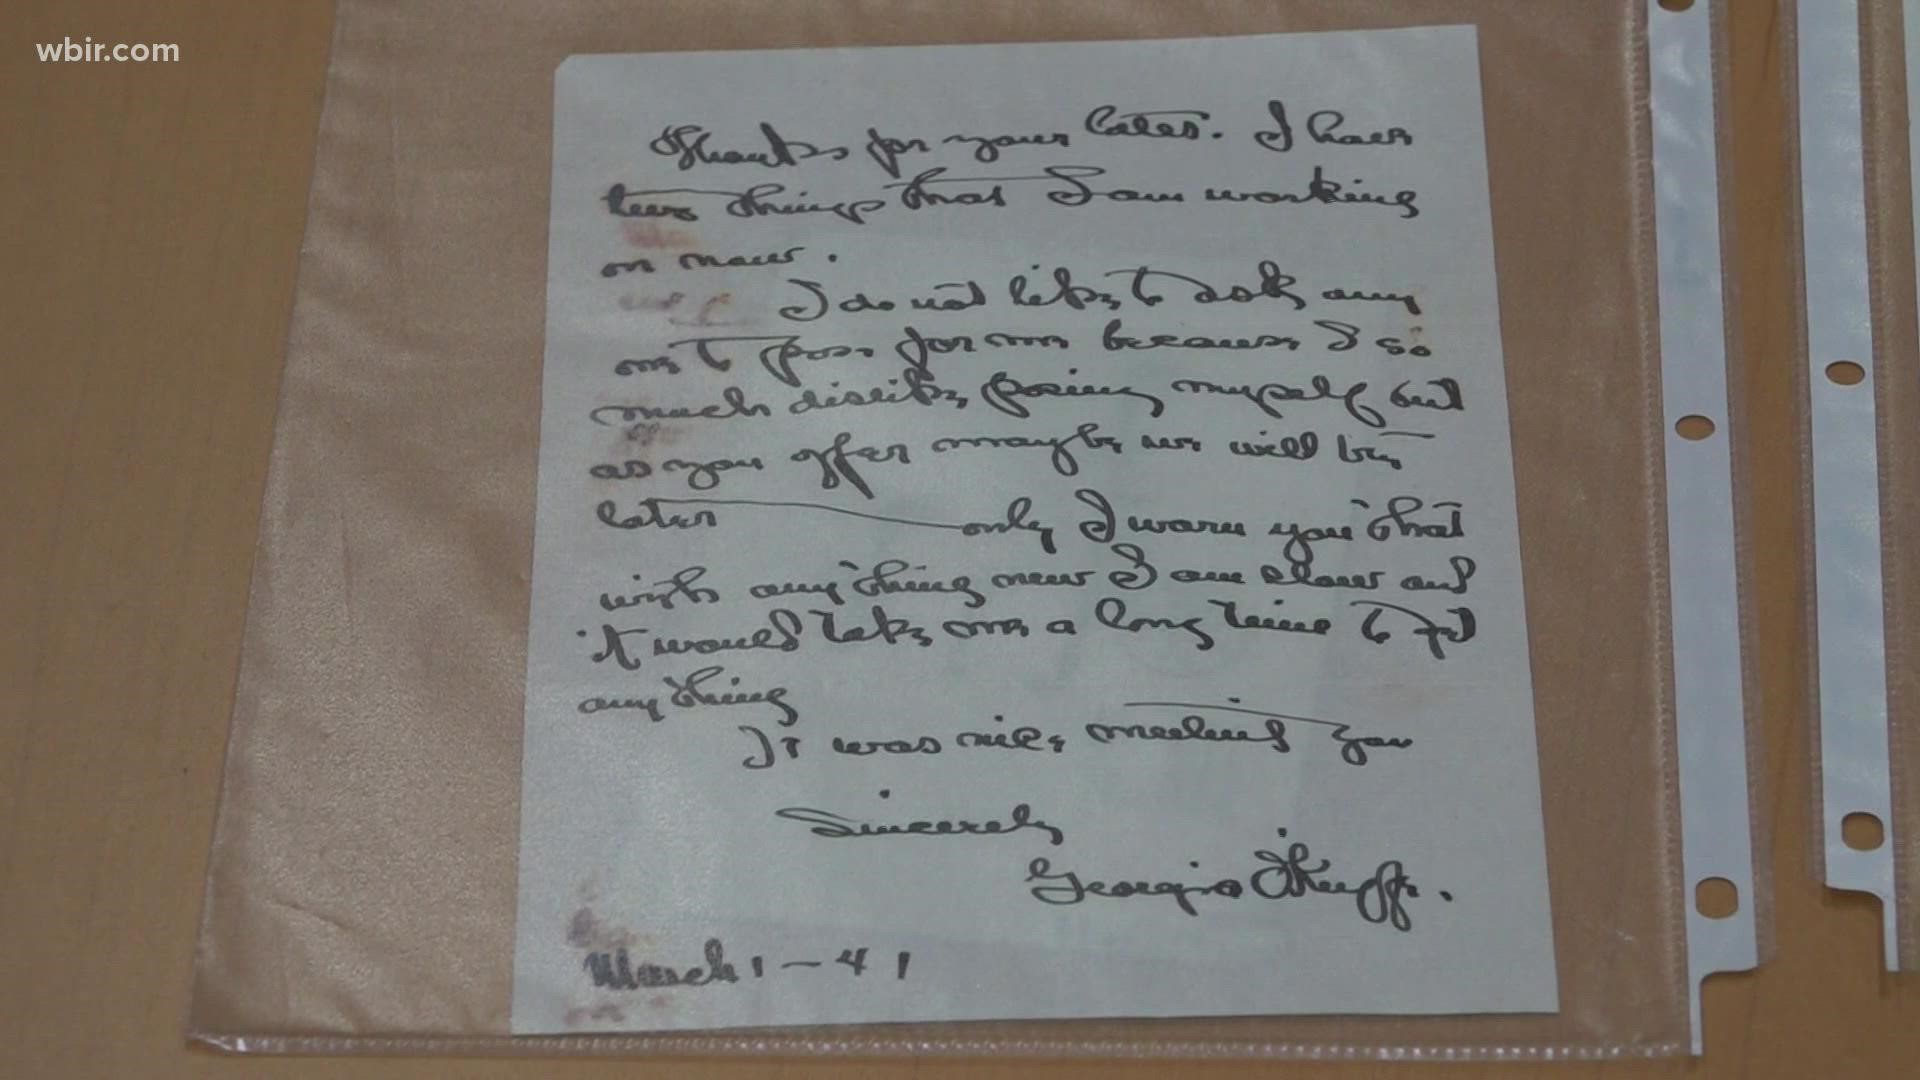 wbir.com
Thanks for your letter. I have
two things that I am working
on now.
I do not like to ask any
one to pose for me because I so
much dislike posing myself but
as you offer maybe we will try
later — only I warn you that
with anything new I am slow and
it would take me a long time to get
anything
It was nice meeting you
Sincerely
Georgia O'Keeffe.
March 1 - 41